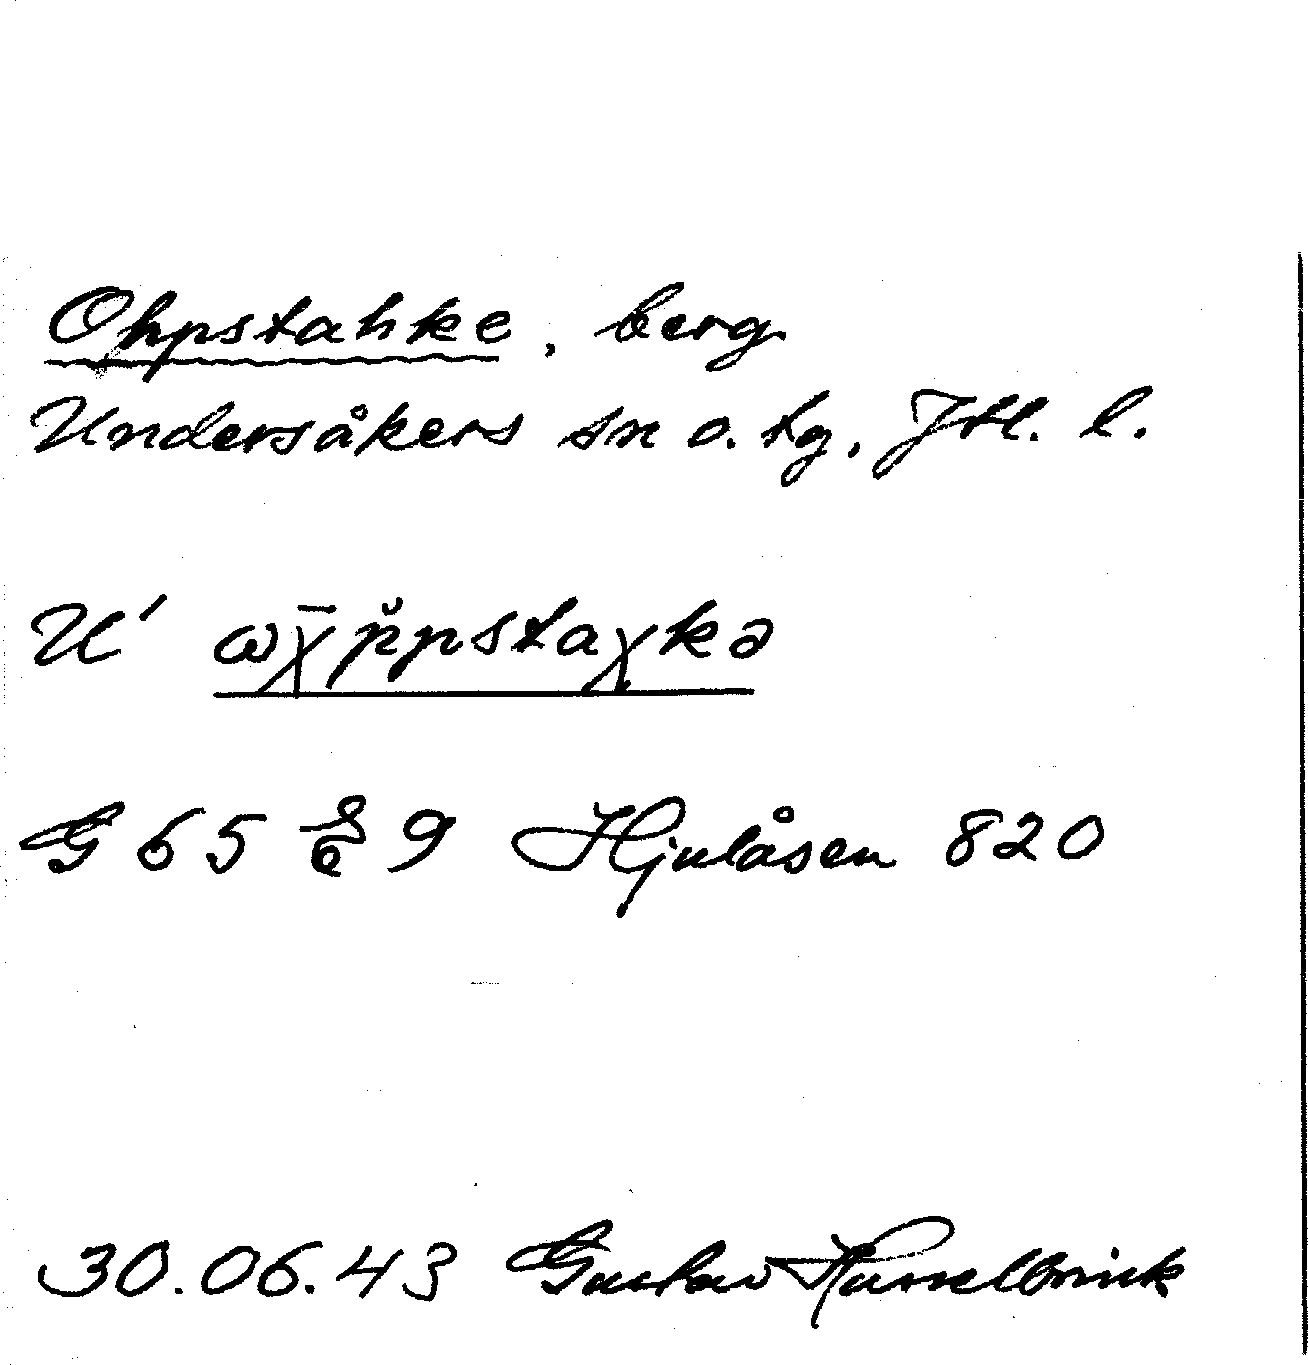 Ohpstahke, berg
Undersåkers sn o. tg, Jtl. l.
U' ωχ̄p̆pstaχkə
G 65 9 Hjulåsen 820
30.06.43 Gustav Hasselbrink